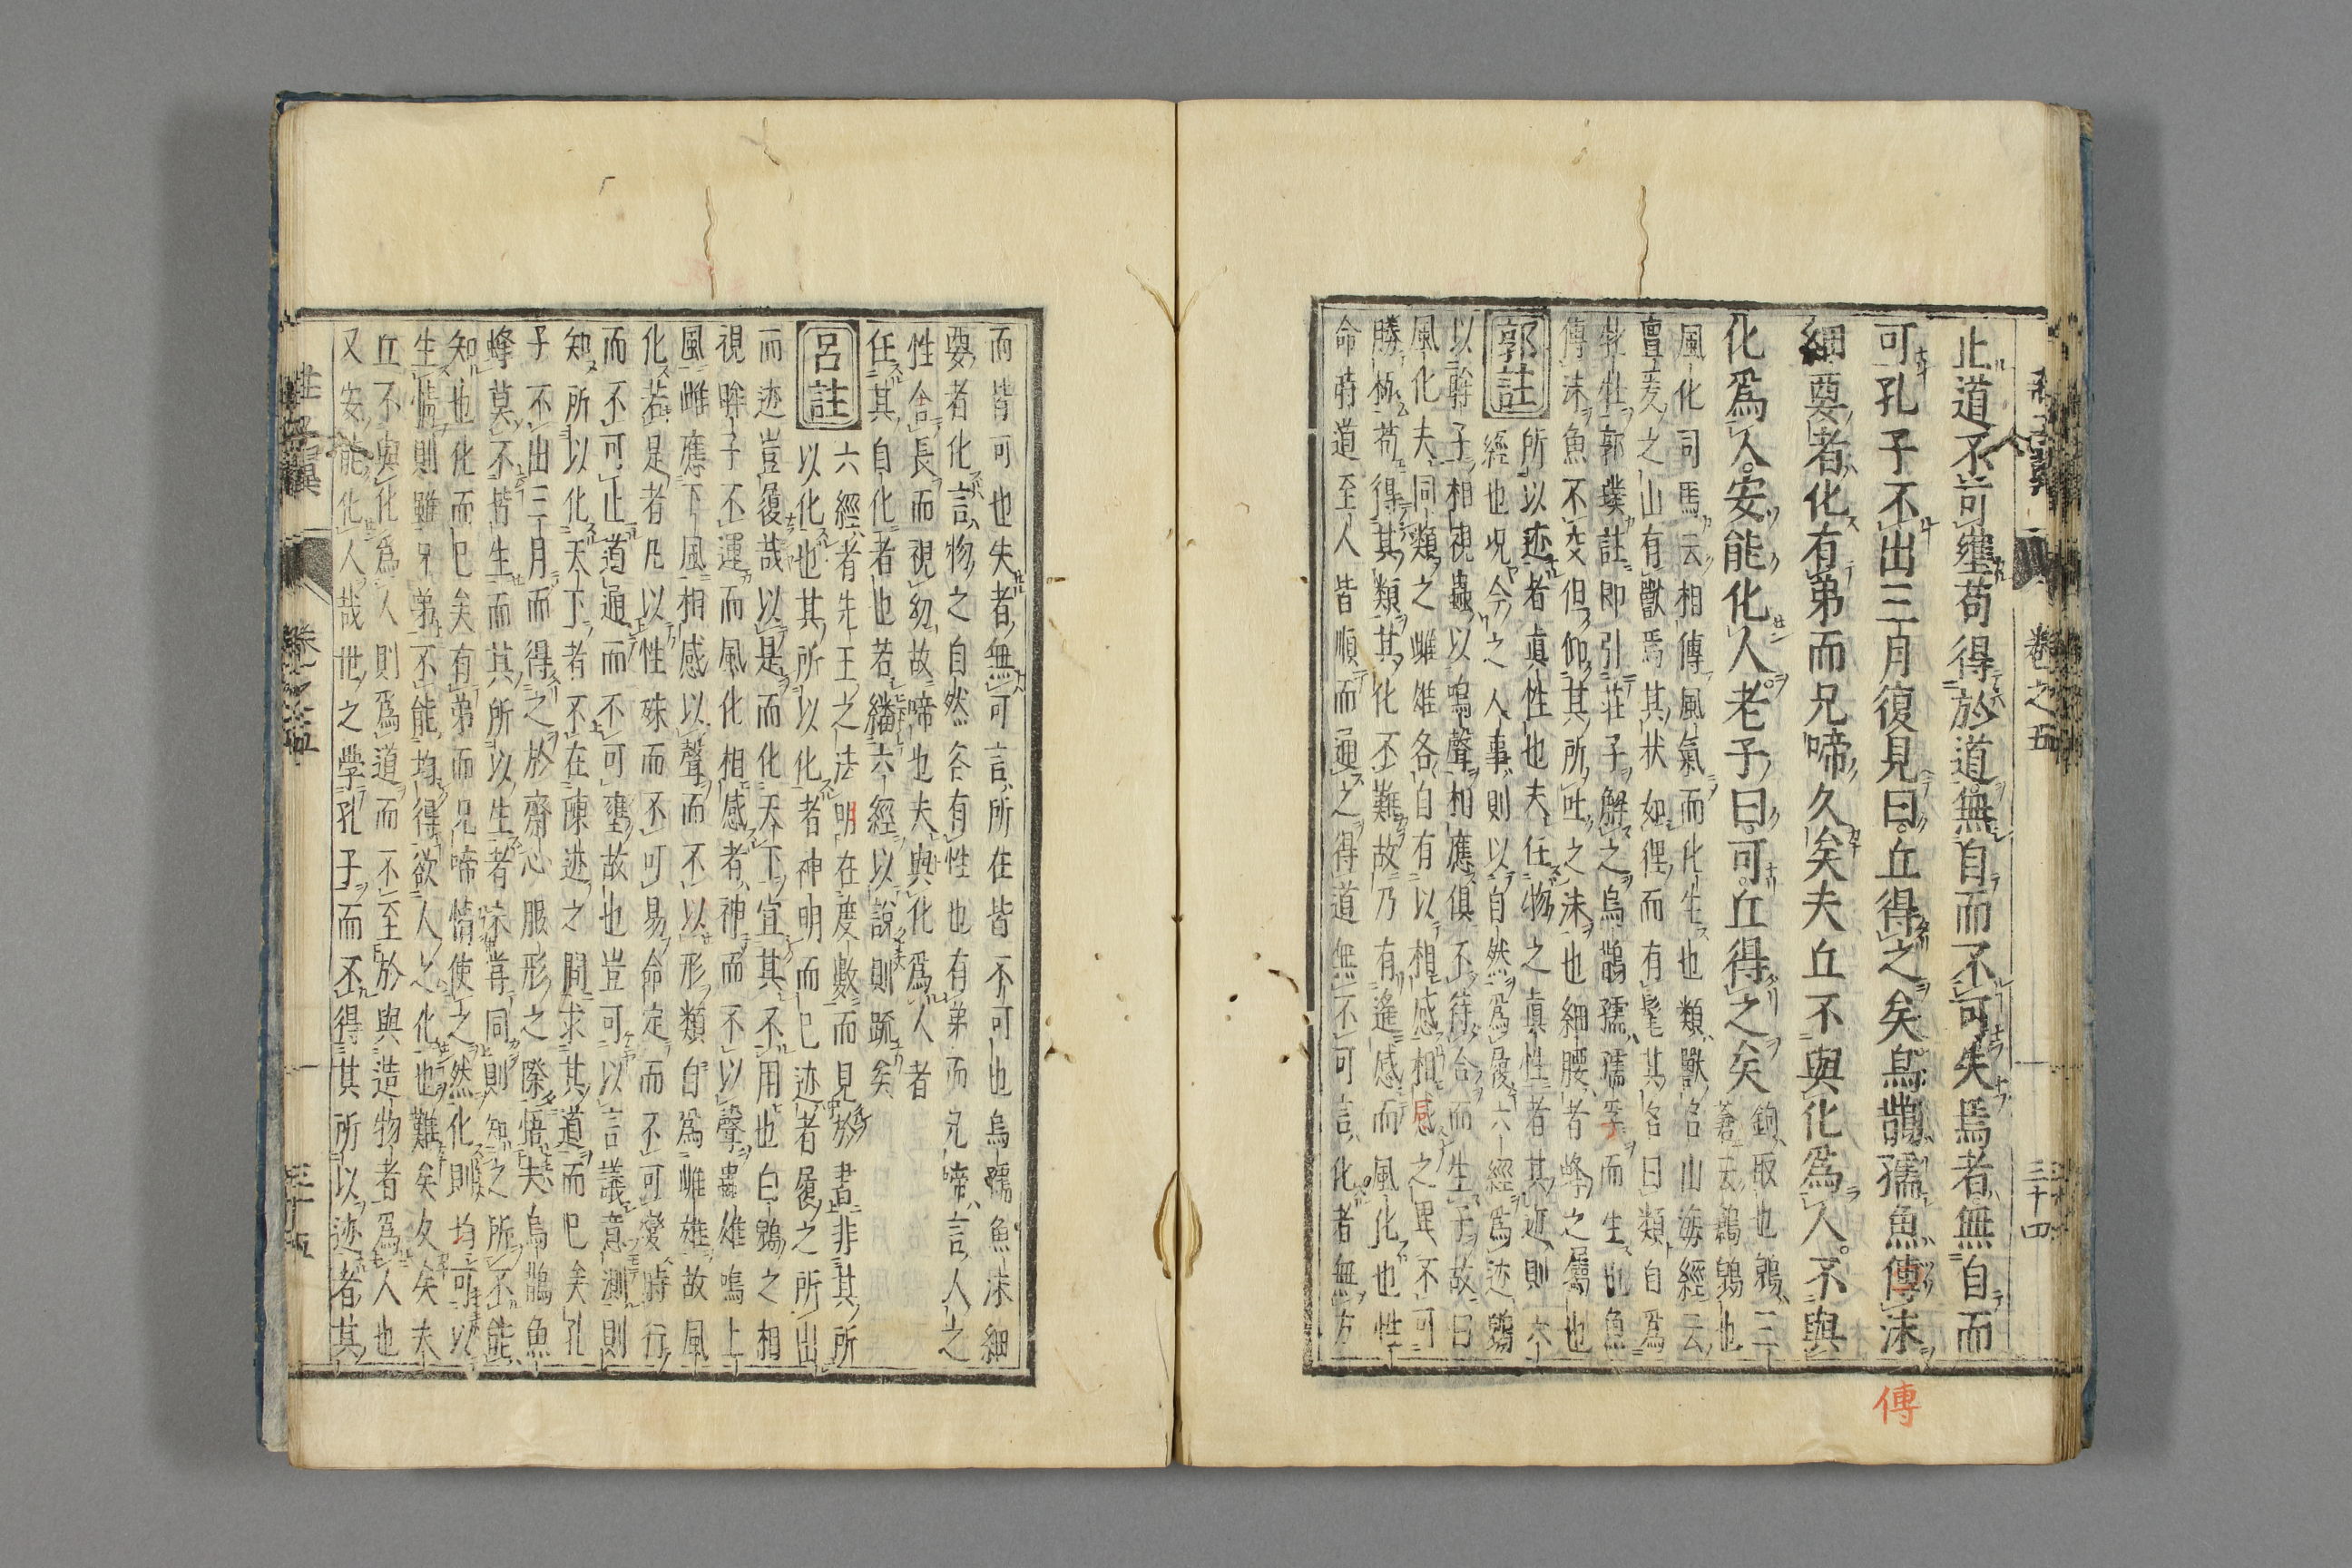 止道不可壅苟得於道無自而不可失焉者無自而
可孔子不出三月復見曰丘得之矣烏鵲孺魚傳沫
細要者化有弟而兄啼久矣夫丘不與化為人不與
化為人安能化人老子曰可丘得之矣
鉤取也鶂三
蒼云鶬鶂也
風化司馬云相傳風氣而化生也類獸名山海經云
亶爰之山有獸焉其狀如狸而有髦其名曰類自為
牝牡郭璞註即引莊子解之烏鵲孺孺孚而生也魚
傳沫魚不交但仰其所吐之沫也細腰者蜂之屬也
郭註
所以迹者真性也夫任物之真性者其迹則六
經也况今之人事則以自然為履六經為迹鶂
以眸子相視蟲以鳴聲相應俱不待合而生子故曰
風化夫同類之雌雄各自有以相感相感之異不可
勝極苟得其類其化不難故乃有遙感而風化也性
命時道至人皆順而通之得道無不可言化者無方
卷之五
三十四
傳
而皆可也失者無可言所在皆不可也烏孺魚沫細
要者化言物之自然各有性也有弟而兄啼言人之
性舍長而視幼故啼也夫與化為人者
任其自化者也若繙六經以說則疏矣
呂註
六經者先王之法明在度數而見於書非其所
以化也其所以化者神明而已迹者履之所出
而迹豈履哉以是而化天下宜其不用也白鶂之相
視眸子不運而風化相感者神而不以聲蟲雄鳴上
風雌應下風相感以聲而不以形類自為雌雄故風
化若是者凡以性殊而不可易命定而不可變時行
而不可止道通而不可壅故也豈可以言議意測則
知所以化天下者不在陳迹之間求其道而已矣孔
子不出三月而得之於齋心服形之際悟夫烏鵲魚
蜂莫不皆生而其所以生者未嘗同則知之所不能
知也化而已矣有弟而兄啼情使之然化則均可以
生惰則雖兄弟不能均得欲人之化也難矣久矣夫
丘不與化為人則為道而不至於與造物者為人也
又安能化人哉世之學孔子而不得其所以迹者其
三十五